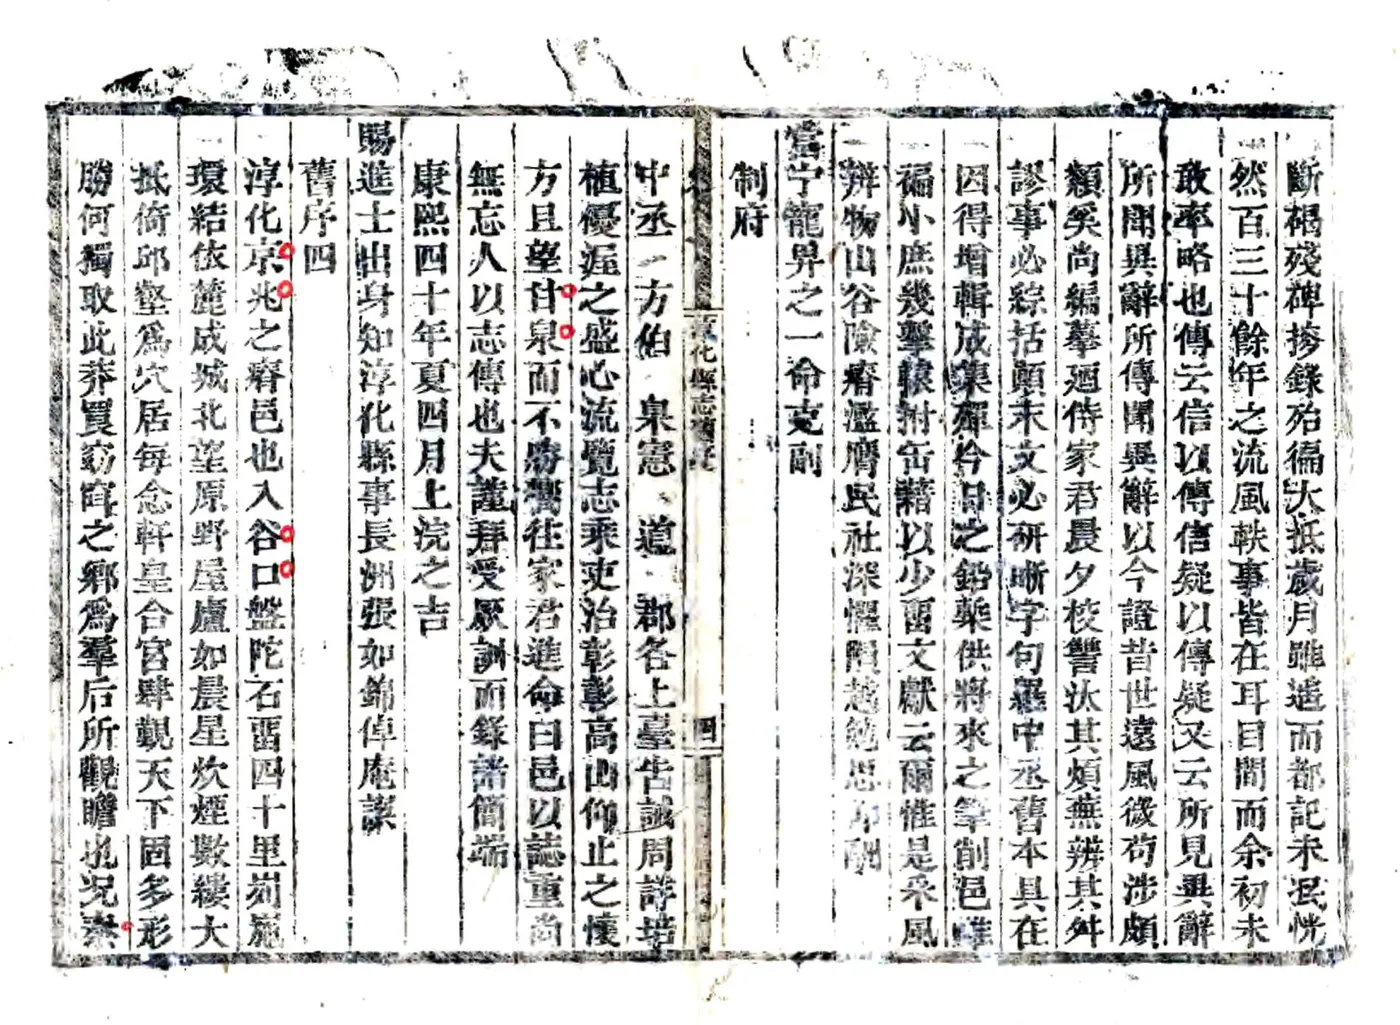 斷碣殘碑搒錄殆徧大抵歲月雖遙而都記未泯恍
然百三十餘年之流風軼事皆在耳目間而余初未
敢率略也傳云信以傳信疑以傳疑又云所見異辭
所聞異辭所傳聞異辭以今證昔世遠風微苟涉頗
類奚尚編摹廼侍家君晨夕校讐汰其煩蕪辨其舛
謬事必綜括顛末文必研晰字句羅中丞舊本具在
因得增輯成集殫今日之鉛槧供將來之筆削邑雖
褊小庶幾擊轅拊缶藉以少畱文獻云爾惟是采風
辨物山谷險瘠濫膺民社深懼隕越勉思仰酬
當宁寵畀之一命克副
制府
中丞 方伯 臬憲 道 郡各上臺告誡周詳培
植優渥之盛心流覽志乘吏治彰彰高山仰止之懷
方且望甘泉而不勝獨往家君進命曰邑以誌重尚
無忘人以志傳也夫謹拜受厥訓而錄諸簡端
康熙四十年夏四月上浣之吉
賜進士出身知淳化縣事長洲張如錦倬庵譔
舊序四
淳化京兆之瘠邑也入谷口盤陀石畱四十里峛崺
環結依麓成城北望原野屋廬如晨星炊煙數縷大
抵倚邱壑爲穴居每念軒皇合宮肆覲天下固多形
勝何獨取此莽買窈窅之鄉爲羣后所觀瞻也况秦
淳化縣志 舊序
四